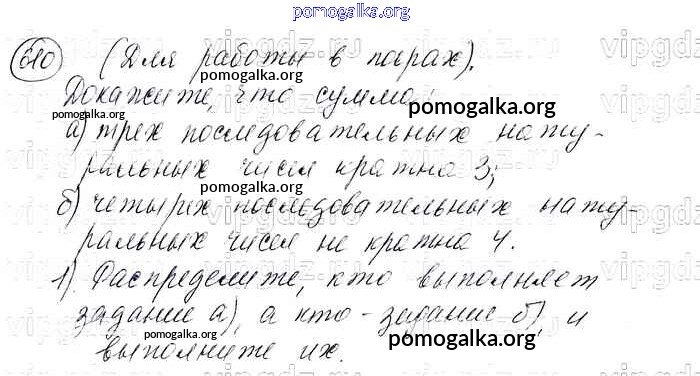 pomogalka.org
610 (Для работы в парах).
pomogalka.org
Докажите, что сумма:
pomogalka.org
а) трех последовательных нату-
ральных чисел кратна 3;
pomogalka.org
б) четырех последовательных нату-
ральных чисел не кратна 4.
pomogalka.org
1) Распределите, кто выполняет
задание а), а кто - задание б), и
pomogalka.org
выполните их.
pomogalka.org